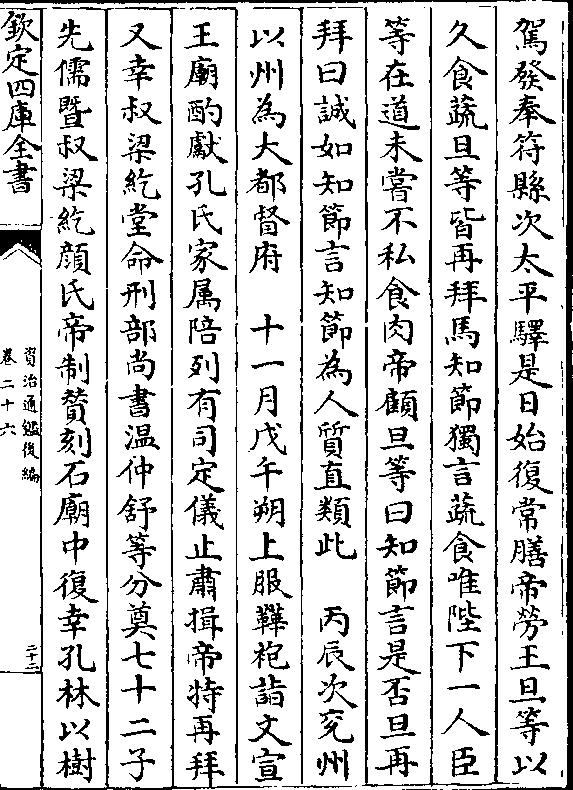 駕發奉符縣次太平驛是日始復常膳帝勞王旦等以
久食蔬旦等皆再拜馬知節獨言蔬食唯陛下一人臣
等在道未嘗不私食肉帝顧旦等曰知節言是否旦再
拜曰誠如知節言知節為人質直類此　丙辰次兖州
以州為大都督府　十一月戊午朔上服鞾袍詣文宣
王廟酌獻孔氏家属陪列有司定儀止肅揖帝特再拜
又幸叔梁紇堂命刑部尚書温仲舒等分奠七十二子
先儒暨叔梁紇顔氏帝制贊刻石廟中復幸孔林以樹
欽定四庫全書
資治通鑑後編
卷二十六
二十三